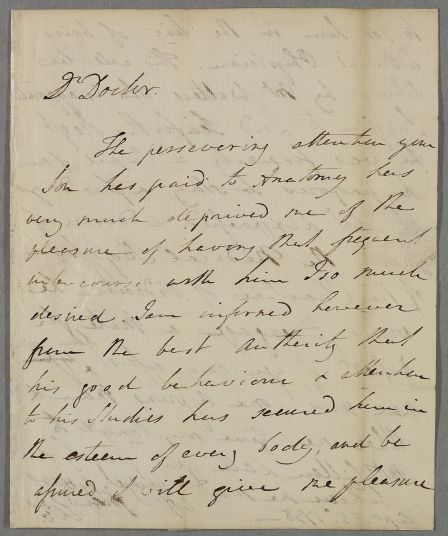 Dr Doctor.
The persevering attention your
Son has paid to Anatomy has
very much deprived me of the
pleasure of having that frequent
intercourse with him I so much
desired. I am informed however
from the best Authority that
his good behaviour & attention
to his Studies has secured him in
the esteem of every body, and be
assured I will give me pleasure